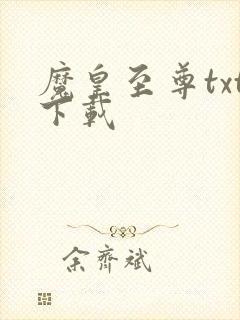 魔皇至尊txt
下载
余齐斌